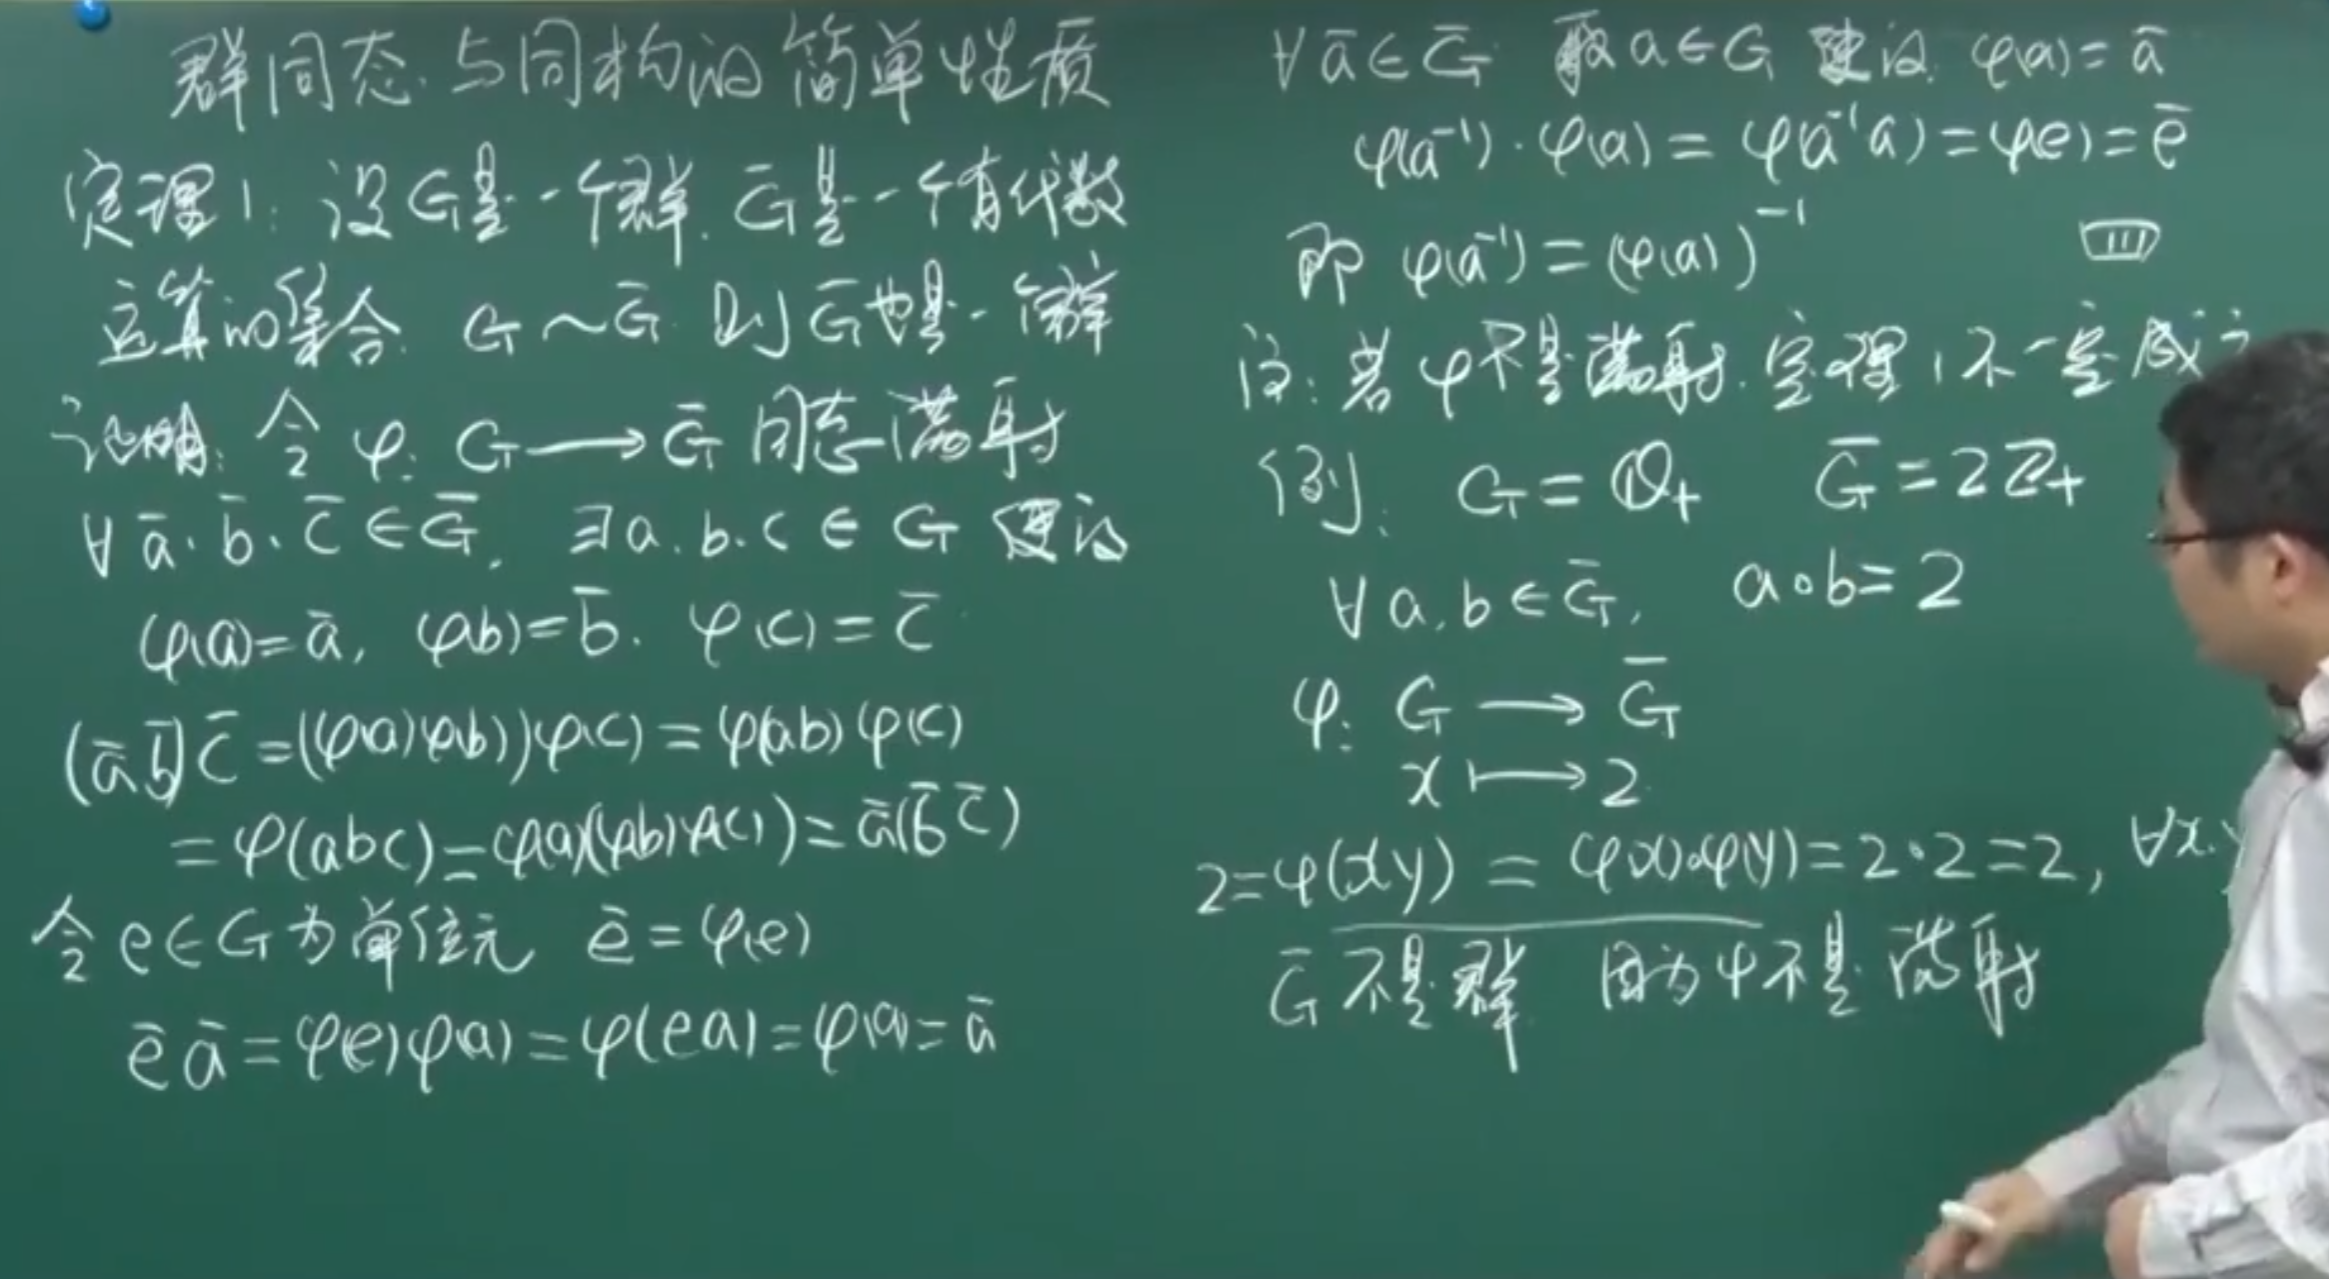 群同态与同构的简单性质
定理1: 设G是一个群. Ḡ是一个有代数
运算的集合. G~Ḡ 则Ḡ也是一个群
证明: 令 φ: G⟶Ḡ 同态满射
∀ā.b̄.c̄∈Ḡ, ∃a.b.c∈G 使得
φ(a)=ā, φ(b)=b̄. φ(c)=c̄
(āb̄)c̄=(φ(a)φ(b))φ(c)=φ(ab)φ(c)
=φ(abc)=φ(a)(φ(b)φ(c))=ā(b̄c̄)
令e∈G为单位元 ē=φ(e)
ēā=φ(e)φ(a)=φ(ea)=φ(a)=ā
∀ā∈Ḡ 取a∈G 使得 φ(a)=ā
φ(a⁻¹)·φ(a)=φ(a⁻¹a)=φ(e)=ē
即 φ(a⁻¹)=(φ(a))⁻¹
注: 若φ不是满射. 定理1不一定成立
例: G=Q₊ Ḡ=2Z₊
∀a,b∈Ḡ, a∘b=2
φ: G⟶Ḡ
x⟼2
2=φ(xy)=φ(x)∘φ(y)=2∘2=2, ∀x,y
Ḡ不是群 因为φ不是满射